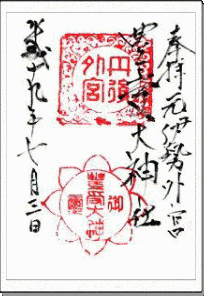 奉拝 元伊勢外宮
豊受大神社
平成十九年七月三日
丹後
外宮
御
豊受大神